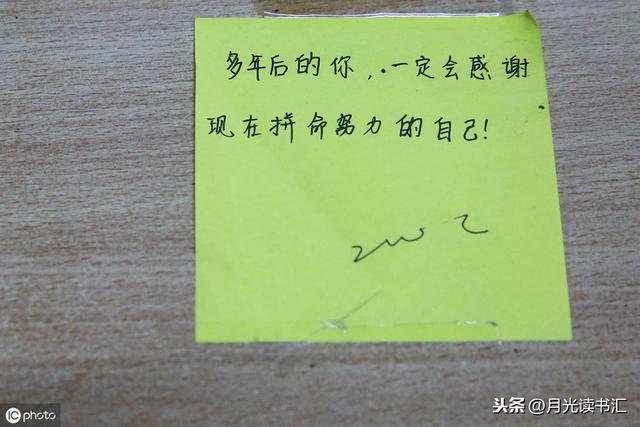 多年后的你，一定会感谢
现在拼命努力的自己！
iC photo
头条@月光读书汇